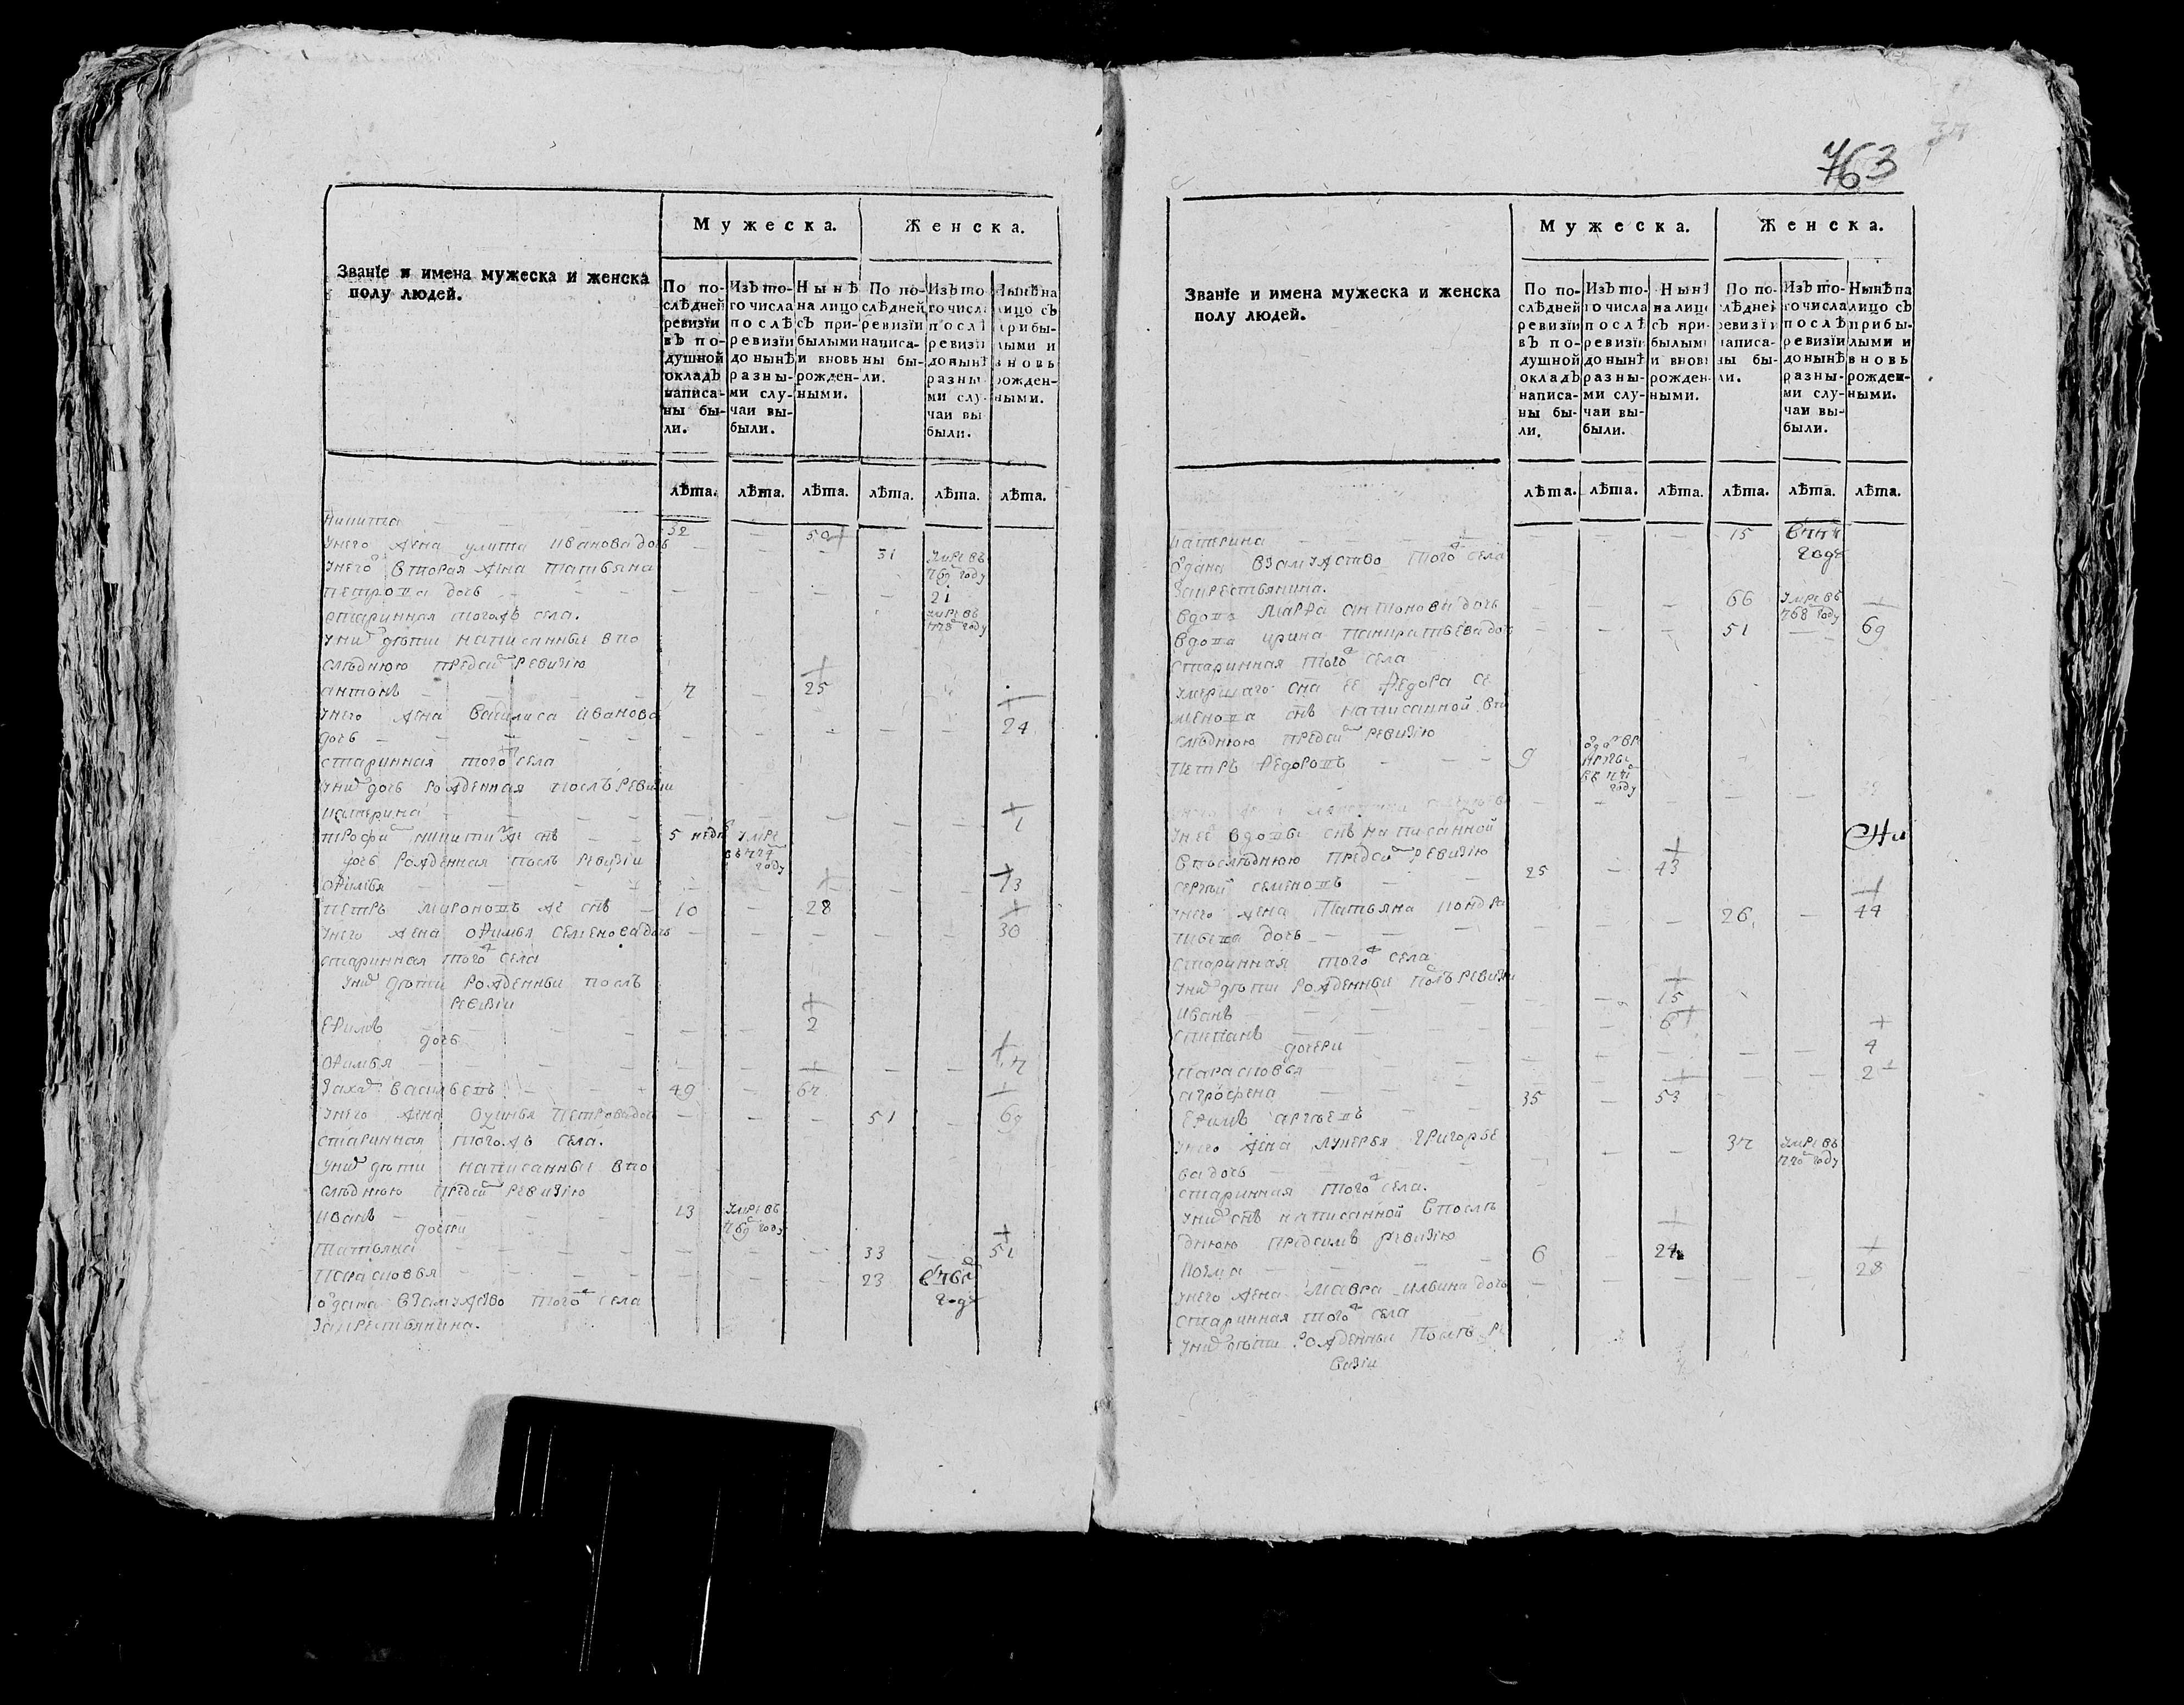 Званїе и имена мужеска и женска
полу людей.
Мужеска.
Женска.
По по-
слѣдней
ревизїи
въ по-
душной
окладъ
написа-
ны бы-
ли.
Изъ то-
го числа
послѣ
ревизїи
до нынѣ
разны-
ми слу-
чаи вы-
были.
Нынѣ
на лицо
съ при-
былыми
и вновь
рожден-
ными.
По по-
слѣдней
ревизїи
написа-
ны бы-
ли.
Изъ то
го числ
послѣ
ревизїи
до нынѣ
разны
ми слу-
чаи вы
были.
Нынѣ на
лицо съ
прибы-
лыми и
вновь
рожден-
ными.
лѣта. лѣта. лѣта. лѣта. лѣта. лѣта.
Никита 32 50
У него жена улита иванова дочь 31 умре въ
769 году
У него вторая жена татьяна
петрова дочь 21
умре въ
778 году
старинная тогожъ села.
У них дѣти написанные в по
слѣднюю пред сим ревизию
антонъ 7 25
У него жена василиса иванова
дочь 24
старинная того ж села
У них дочь рожденная послѣ ревизии
катерина 1
трофим никитин же снъ 5 недел умре
въ 774
году
дочь рожденная послѣ ревизии
офимья 13
петръ мироновъ же снъ 10 28
У него жена офимья семенова дочь 30
старинная того ж села
У них дѣти рожденные послѣ
ревизии
Ефимъ 2
дочь
офимья 7
Захар васильевъ 49 67
У него жена офимья петрова дочь 51 69
старинная тогожъ села.
У них дѣти написанные в по
слѣднюю пред сим ревизию
иванъ 13 умре въ
769 году
дочери
татьяна 33 51
парасковья 23 в
годе
отдата в замужство того ж села
за крестьянина.
763
37
Званїе и имена мужеска и женска
полу людей.
Мужеска.
Женска.
По по-
слѣдней
ревизїи
въ по-
душной
окладъ
написа-
ны бы-
ли.
Изъ то-
го числа
послѣ
ревизїи
до нынѣ
разны-
ми слу-
чаи вы-
были.
Нынѣ
на лицо
съ при-
былыми
и вновь
рожден-
ными.
По по-
слѣдней
ревизїи
написа-
ны бы-
ли.
Изъ то-
го числа
послѣ
ревизїи
до нынѣ
разны-
ми слу-
чаи вы-
были.
Нынѣ на
лицо съ
прибы-
лыми и
вновь
рожден-
ными.
лѣта. лѣта. лѣта. лѣта. лѣта. лѣта.
катерина 15 в
годе
отдана в замужство того ж села
за крестьянина.
вдова марфа антонова дочь 66 умре въ
768 году
вдова ирина панкратьева дочь 51 69
старинная того ж села
умершаго сна ее федора се
менова снъ написанной в по
слѣднюю пред сим ревизию
петръ федоровъ 9 отдан в ре
круты
въ
году
У нее вдовы снъ написанной
в послѣднюю пред сим ревизию
сергѣй семеновъ 25 43
У него жена татьяна кондра
тьева дочь 26 44
старинная того ж села
У них дѣти рожденные послѣ ревизии
иванъ 15
степанъ 6
дочери
парасковья 4
агрофена 2
Ефимъ 35 53
У него жена лукерья григорье
ва дочь 37 умре въ
770 году
старинная того ж села.
У них снъ написанной в послѣ
днюю пред симъ ревизию
козма 6 24
У него жена мавра ильина дочь 28
старинная того ж села
У них дѣти рожденные послѣ ре
визии